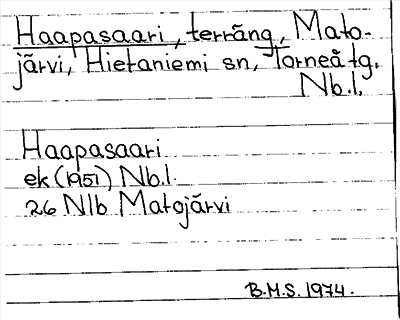 Haapasaari, terräng, Mato-
järvi, Hietaniemi sn, Torneå tg.
Nb.l.
Haapasaari
ek (1951) Nb.l.
26 Nlb Matojärvi
B.M.S. 1974.